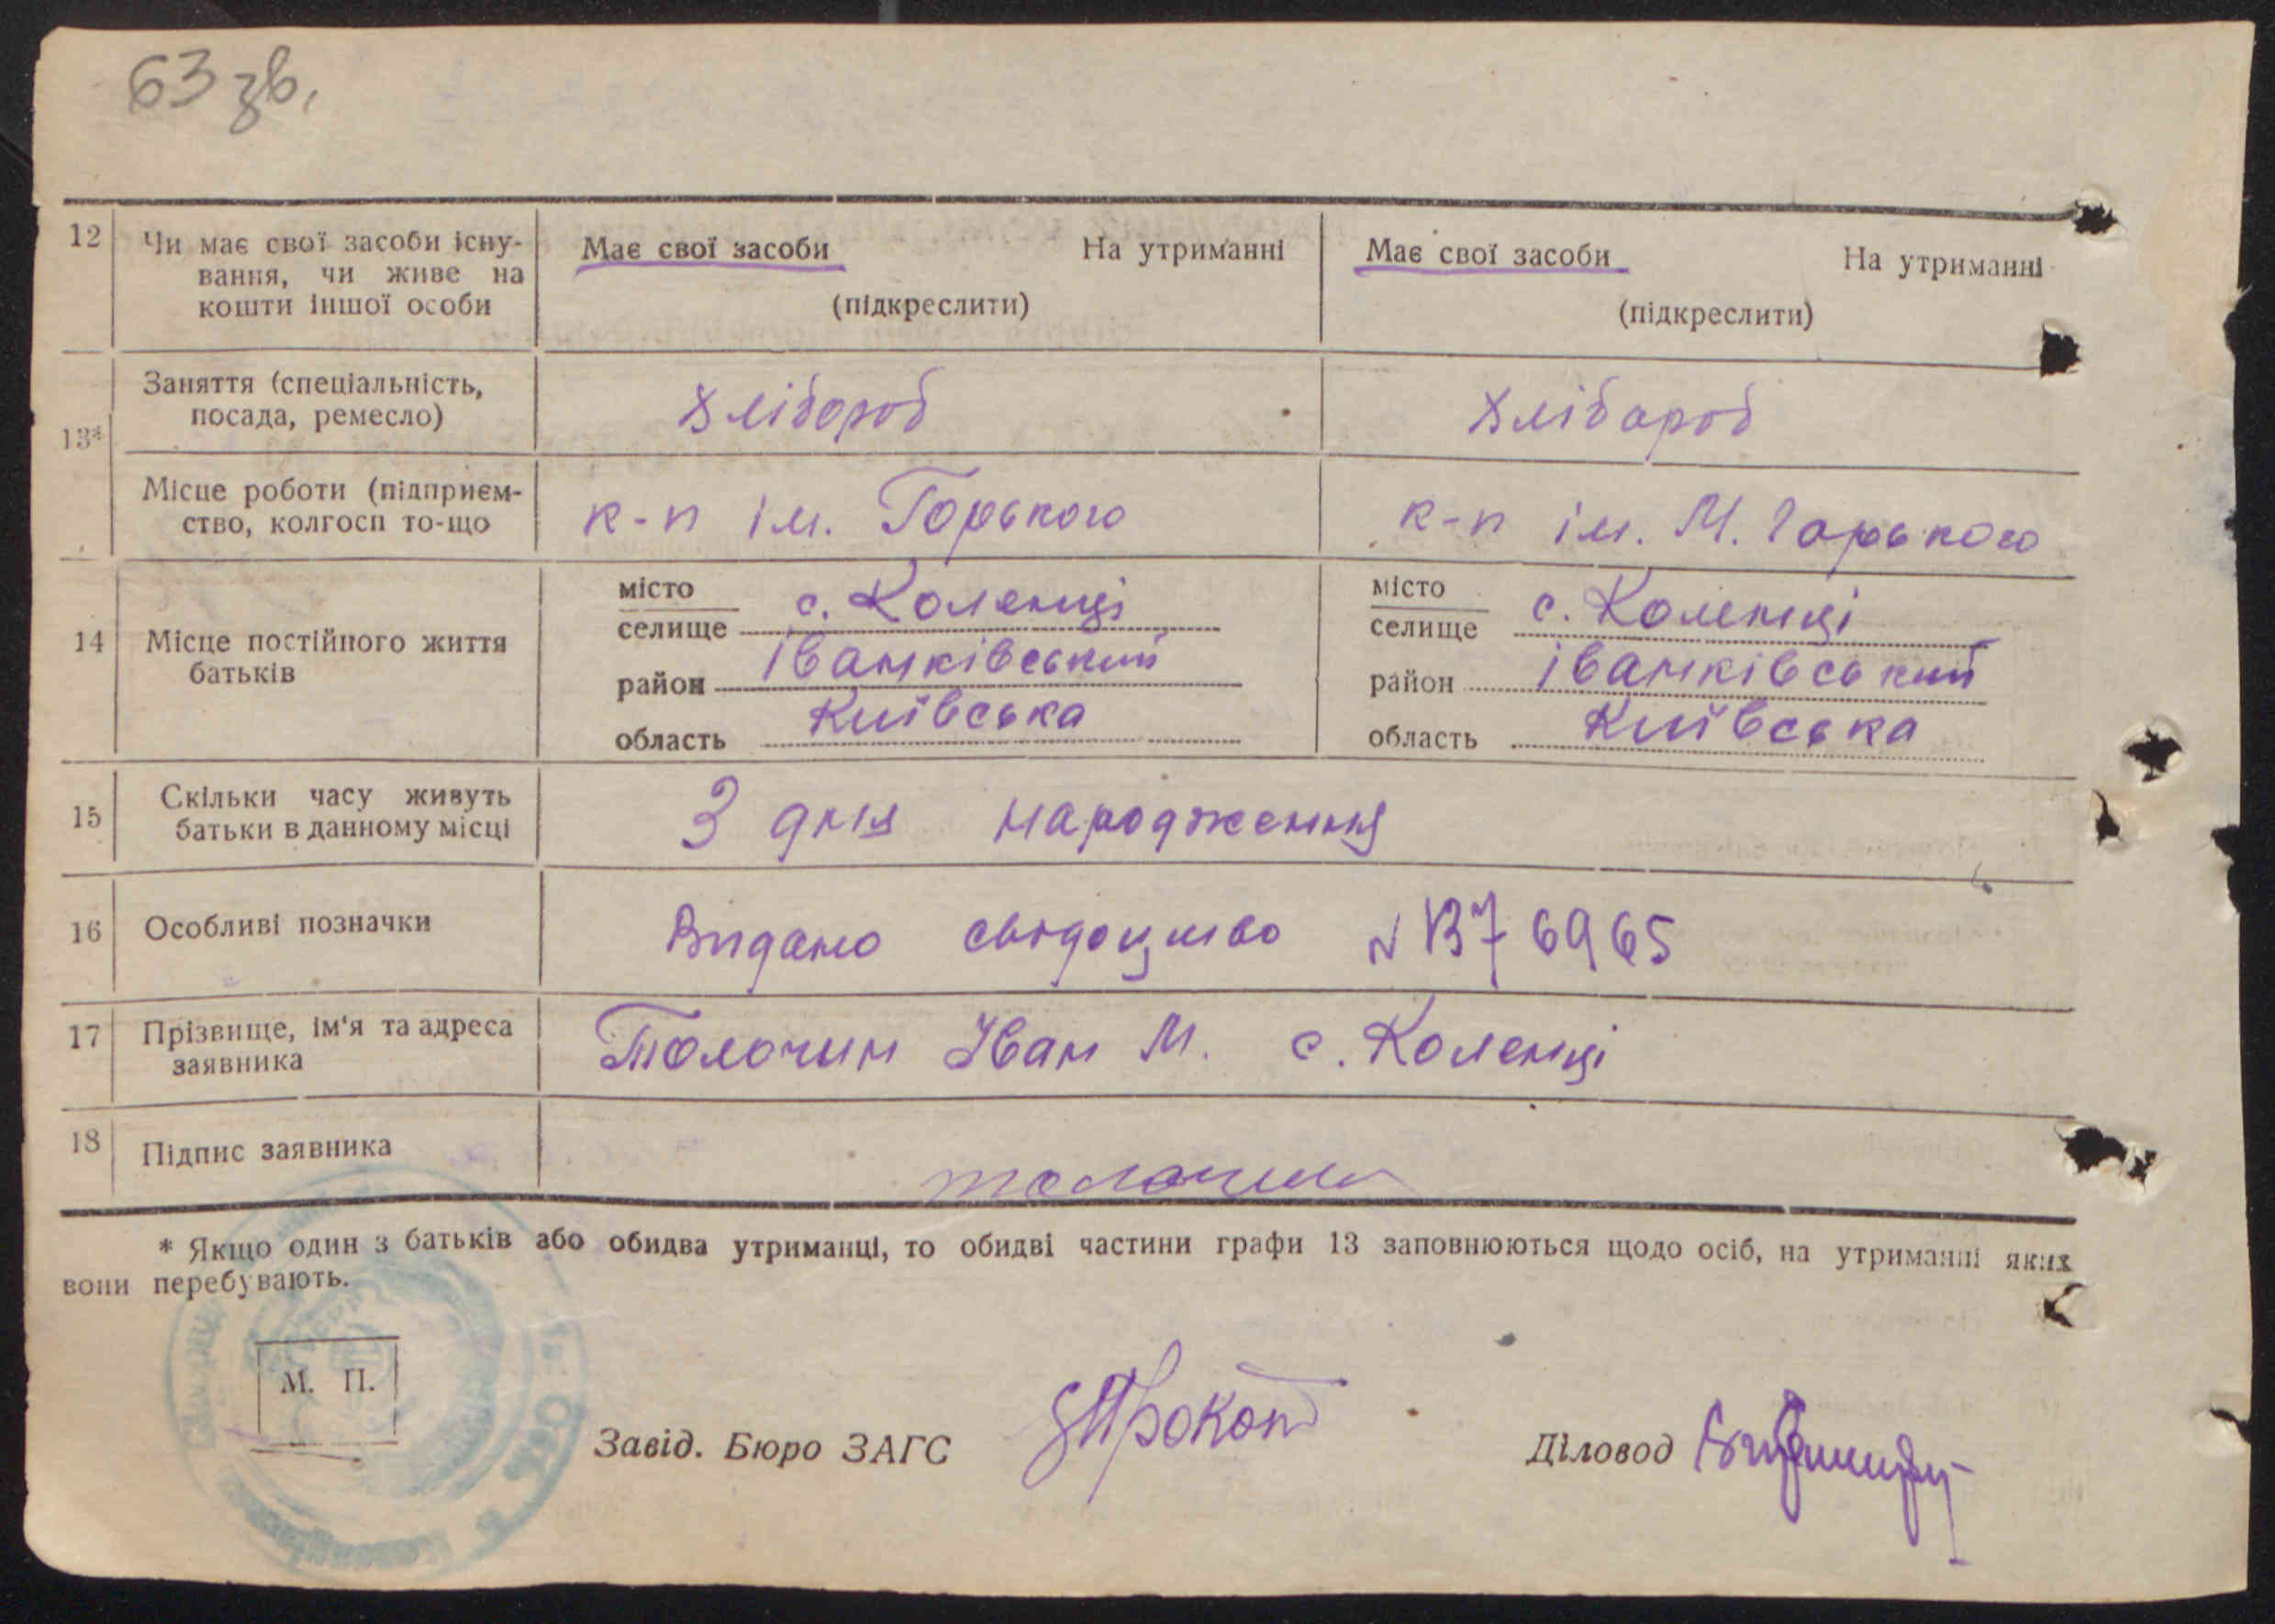 63 зв.
12 Чи має свої засоби існу- Має свої засоби На утриманні Має свої засоби На утриманні
вання, чи живе на
кошти іншої особи (підкреслити) (підкреслити)
13* Заняття (спеціальність, Хлібороб Хлібароб
посада, ремесло)
Місце роботи (підприєм- к-п ім. Горького к-п ім. М. Горького
ство, колгосп то-що
14 Місце постійного життя
батьків
місто
селище с. Коленці
район Іванківський
область Київська
місто
селище с. Коленці
район Іванківський
область Київська
15 Скільки часу живуть З дня народження
батьки в данному місці
16 Особливі позначки Видано свідоцтво N 1376965
17 Прізвище, ім'я та адреса Толочин Іван М. с. Коленці
заявника
18 Підпис заявника толочин
* Якщо один з батьків або обидва утриманці, то обидві частини графи 13 заповнюються щодо осіб, на утриманні яких
вони перебувають.
М. П.
Завід. Бюро ЗАГС
Діловод